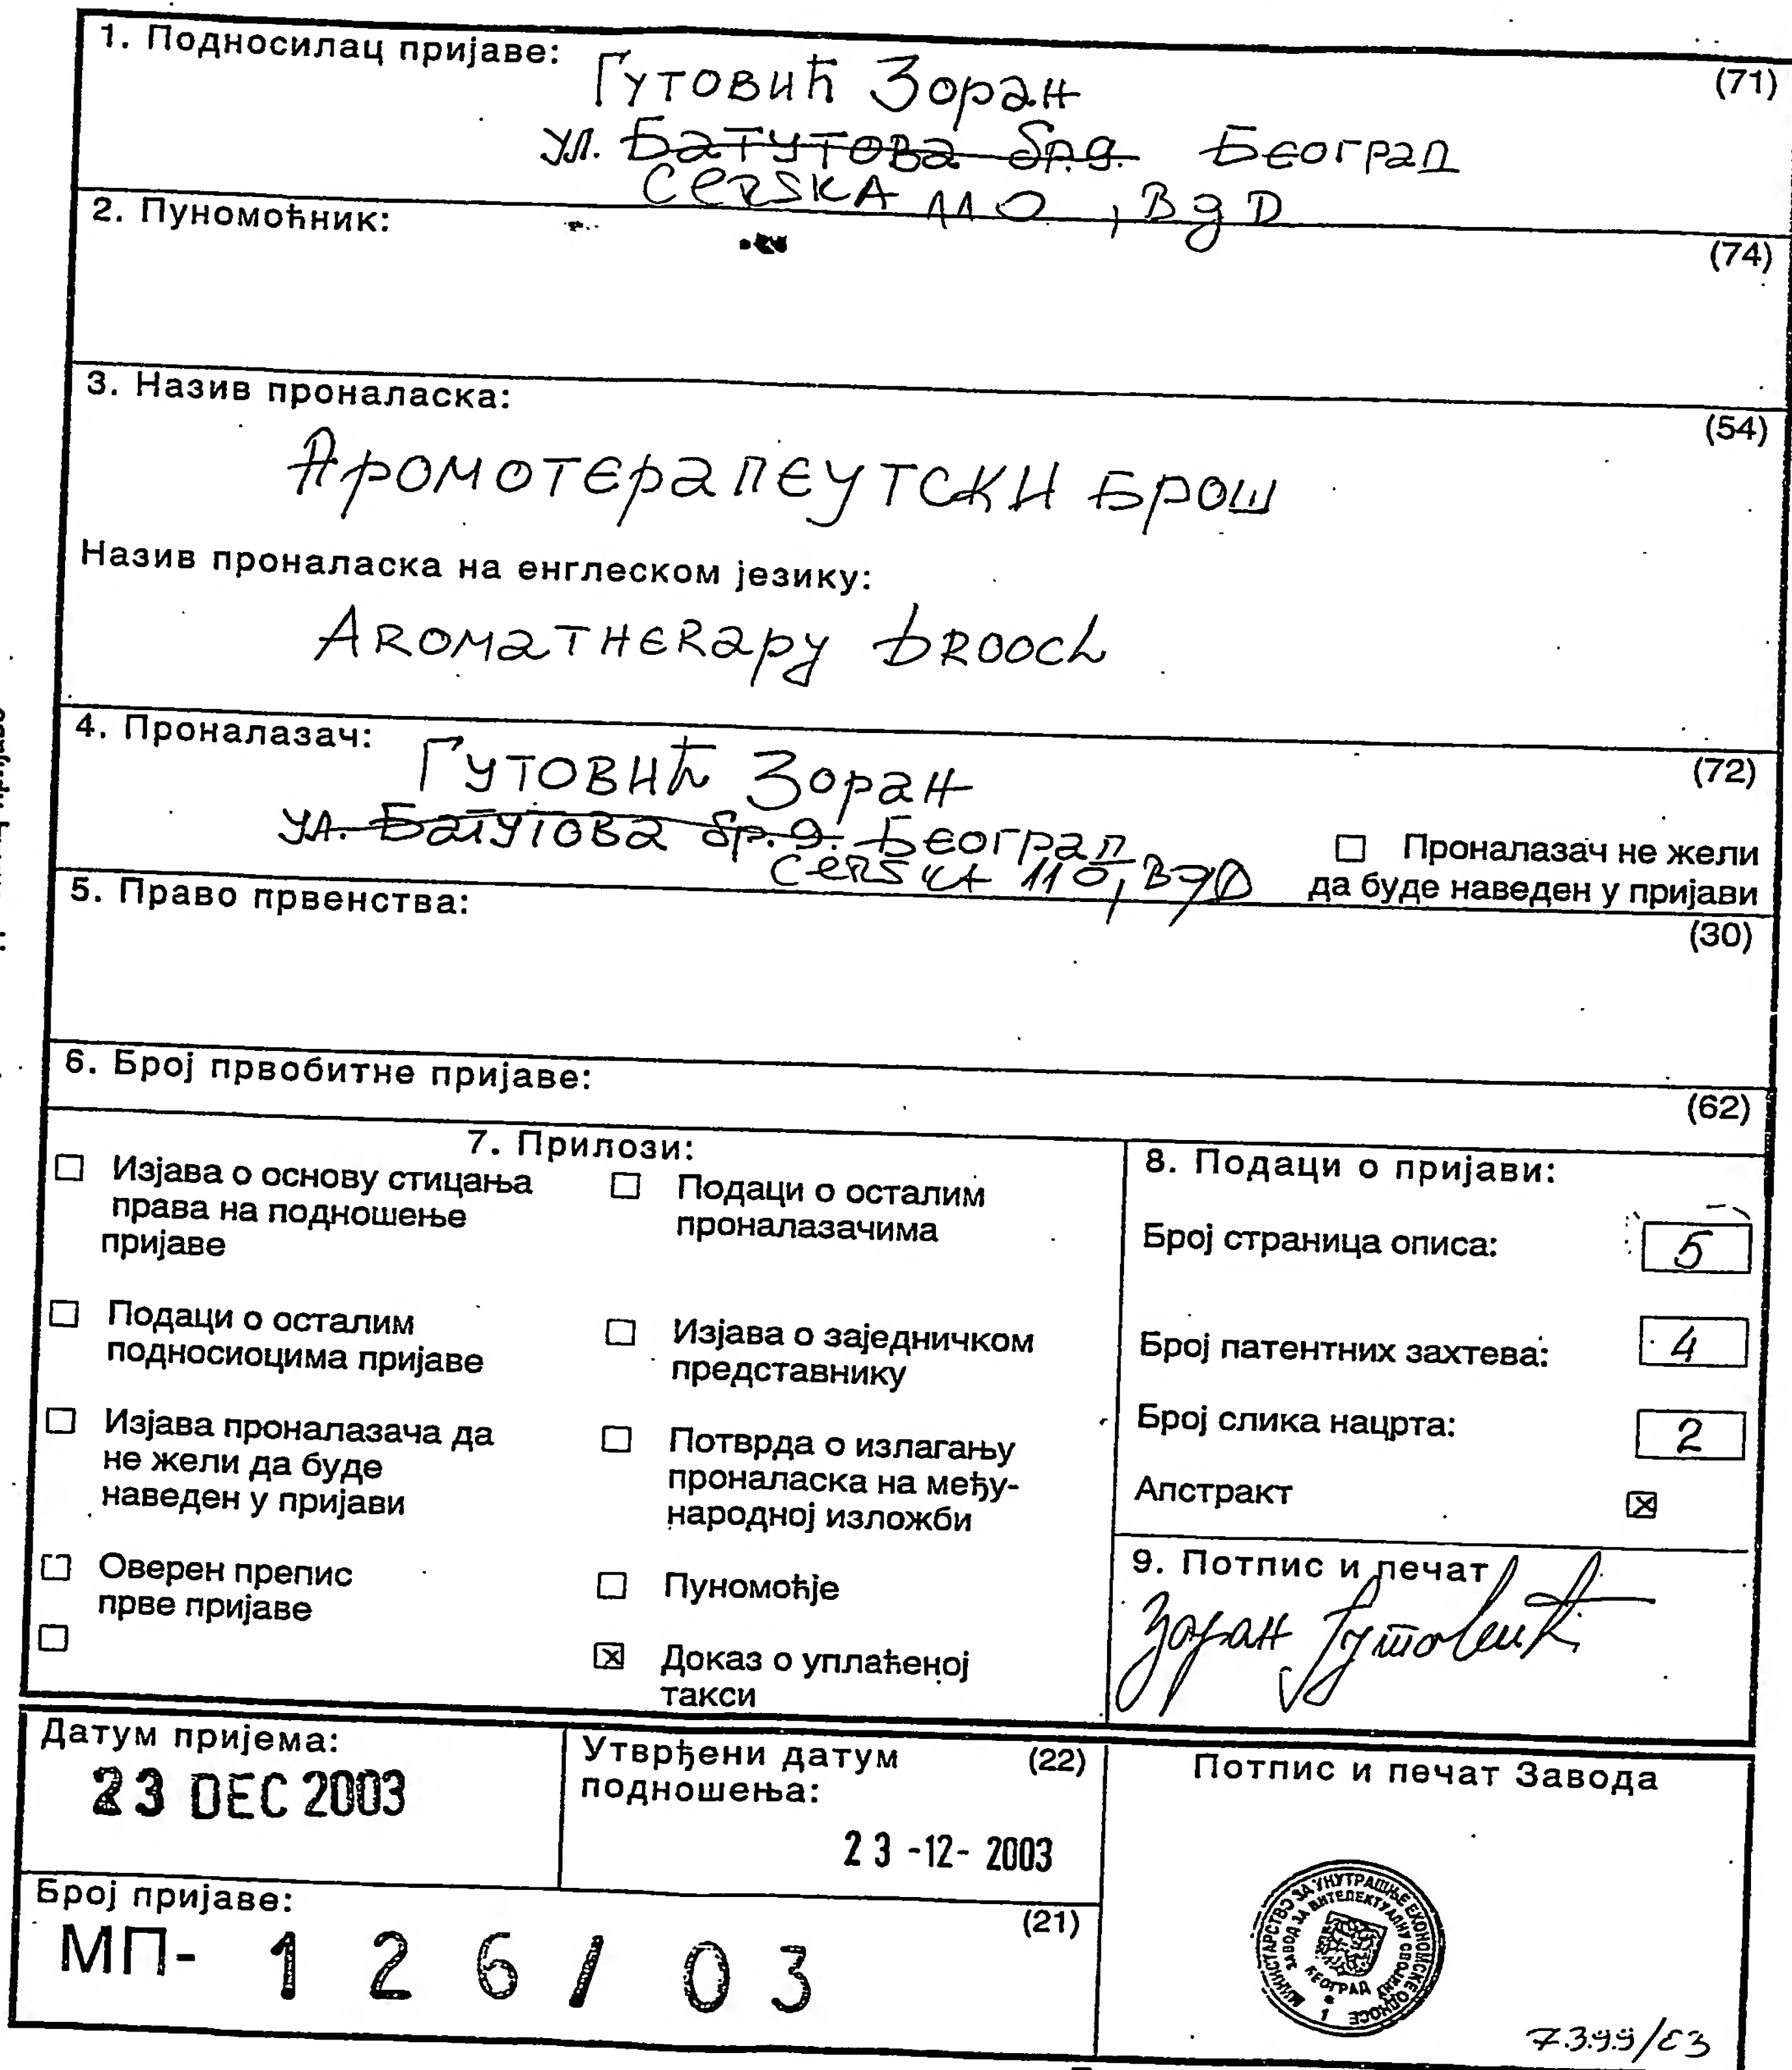 1. Подносилац пријаве: (71)
Гутовић Зоран
ул. Батутова бр.9. Београд
CERSKA 110, BgD
2. Пуномоћник: (74)
3. Назив проналаска: (54)
Аромотерапеутски брош
Назив проналаска на енглеском језику:
Aromatherapy brooch
4. Проналазач: (72)
Гутовић Зоран
ул. Батутова бр.9. Београд
CERSKA 110, BgD
☐ Проналазач не жели
да буде наведен у пријави
5. Право првенства: (30)
6. Број првобитне пријаве: (62)
7. Прилози:
☐ Изјава о основу стицања
права на подношење
пријаве
☐ Подаци о осталим
подносиоцима пријаве
☐ Изјава проналазача да
не жели да буде
наведен у пријави
☐ Оверен препис
прве пријаве
☐
☐ Подаци о осталим
проналазачима
☐ Изјава о заједничком
представнику
☐ Потврда о излагању
проналаска на међу-
народној изложби
☐ Пуномоћје
☒ Доказ о уплаћеној
такси
8. Подаци о пријави:
Број страница описа: 5
Број патентних захтева: 4
Број слика нацрта: 2
Апстракт ☒
9. Потпис и печат
Зоран Гутовић
Датум пријема:
23 DEC 2003
Утврђени датум (22)
подношења:
23 -12- 2003
Број пријаве: (21)
МП- 126/03
Потпис и печат Завода
МИНИСТАРСТВО ЗА УНУТРАШЊЕ ЕКОНОМСКЕ ОДНОСЕ
ЗАВОД ЗА ИНТЕЛЕКТУАЛНУ СВОЈИНУ
БЕОГРАД
1